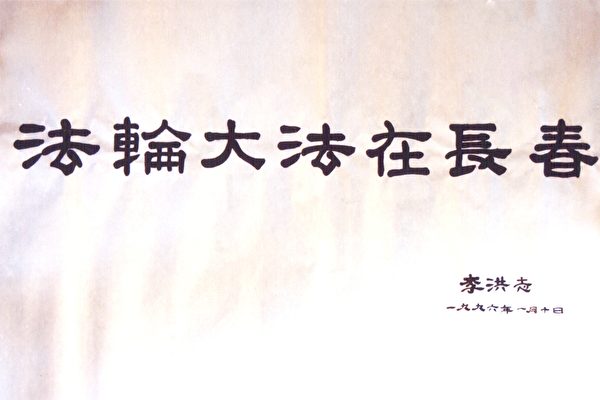 法輪大法在長春
李洪志
一九九六年一月十日